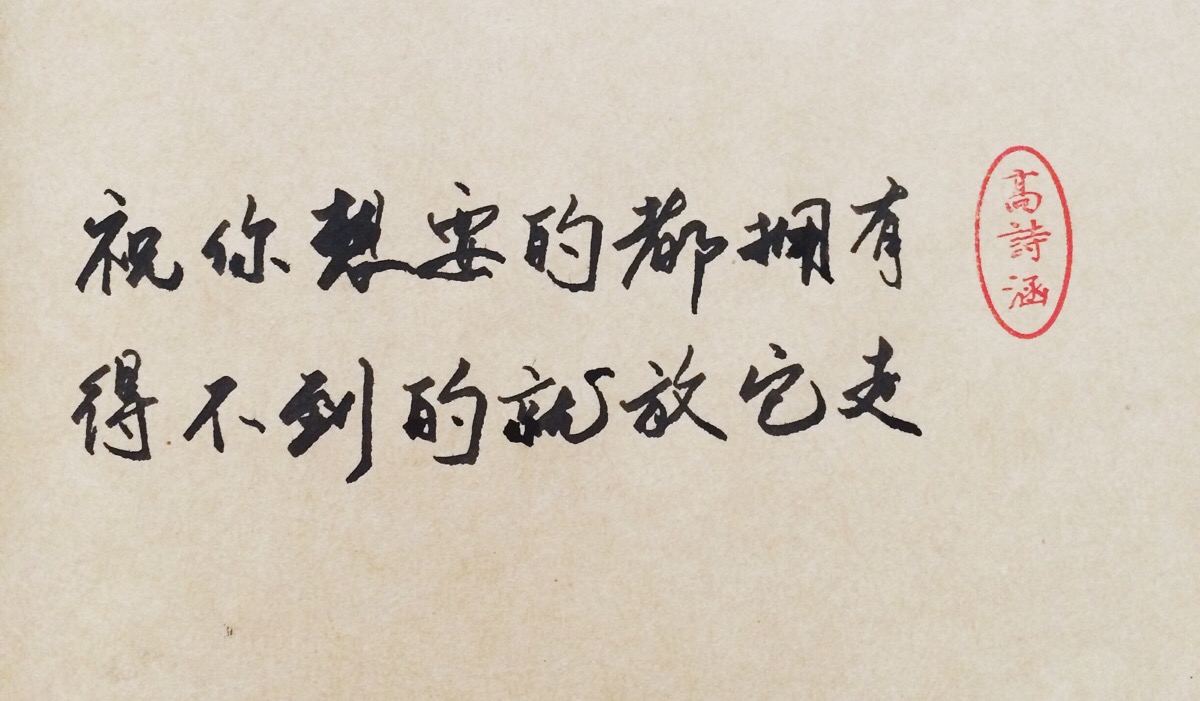 祝你想要的都拥有
得不到的就放它走
高詩涵